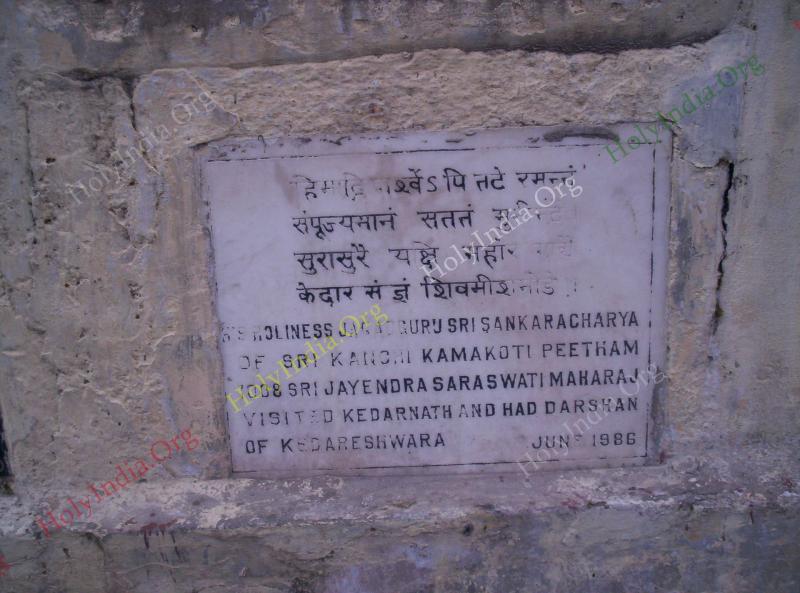 तटे रमन्तं
संपूज्यमानं सततं
सुरासुरै
केदार सं ज्ञं
HOLINESS JAGADGURU SRI SANKARACHARYA
OF SRI KANCHI KAMAKOTI PEETHAM
1008 SRI JAYENDRA SARASWATI MAHARAJ
VISITED KEDARNATH AND HAD DARSHAN
OF KEDARESHWARA JUNE 1986
HolyIndia.Org
HolyIndia.Org
HolyIndia.Org
HolyIndia.Org
HolyIndia.Org
HolyIndia.Org
HolyIndia.Org